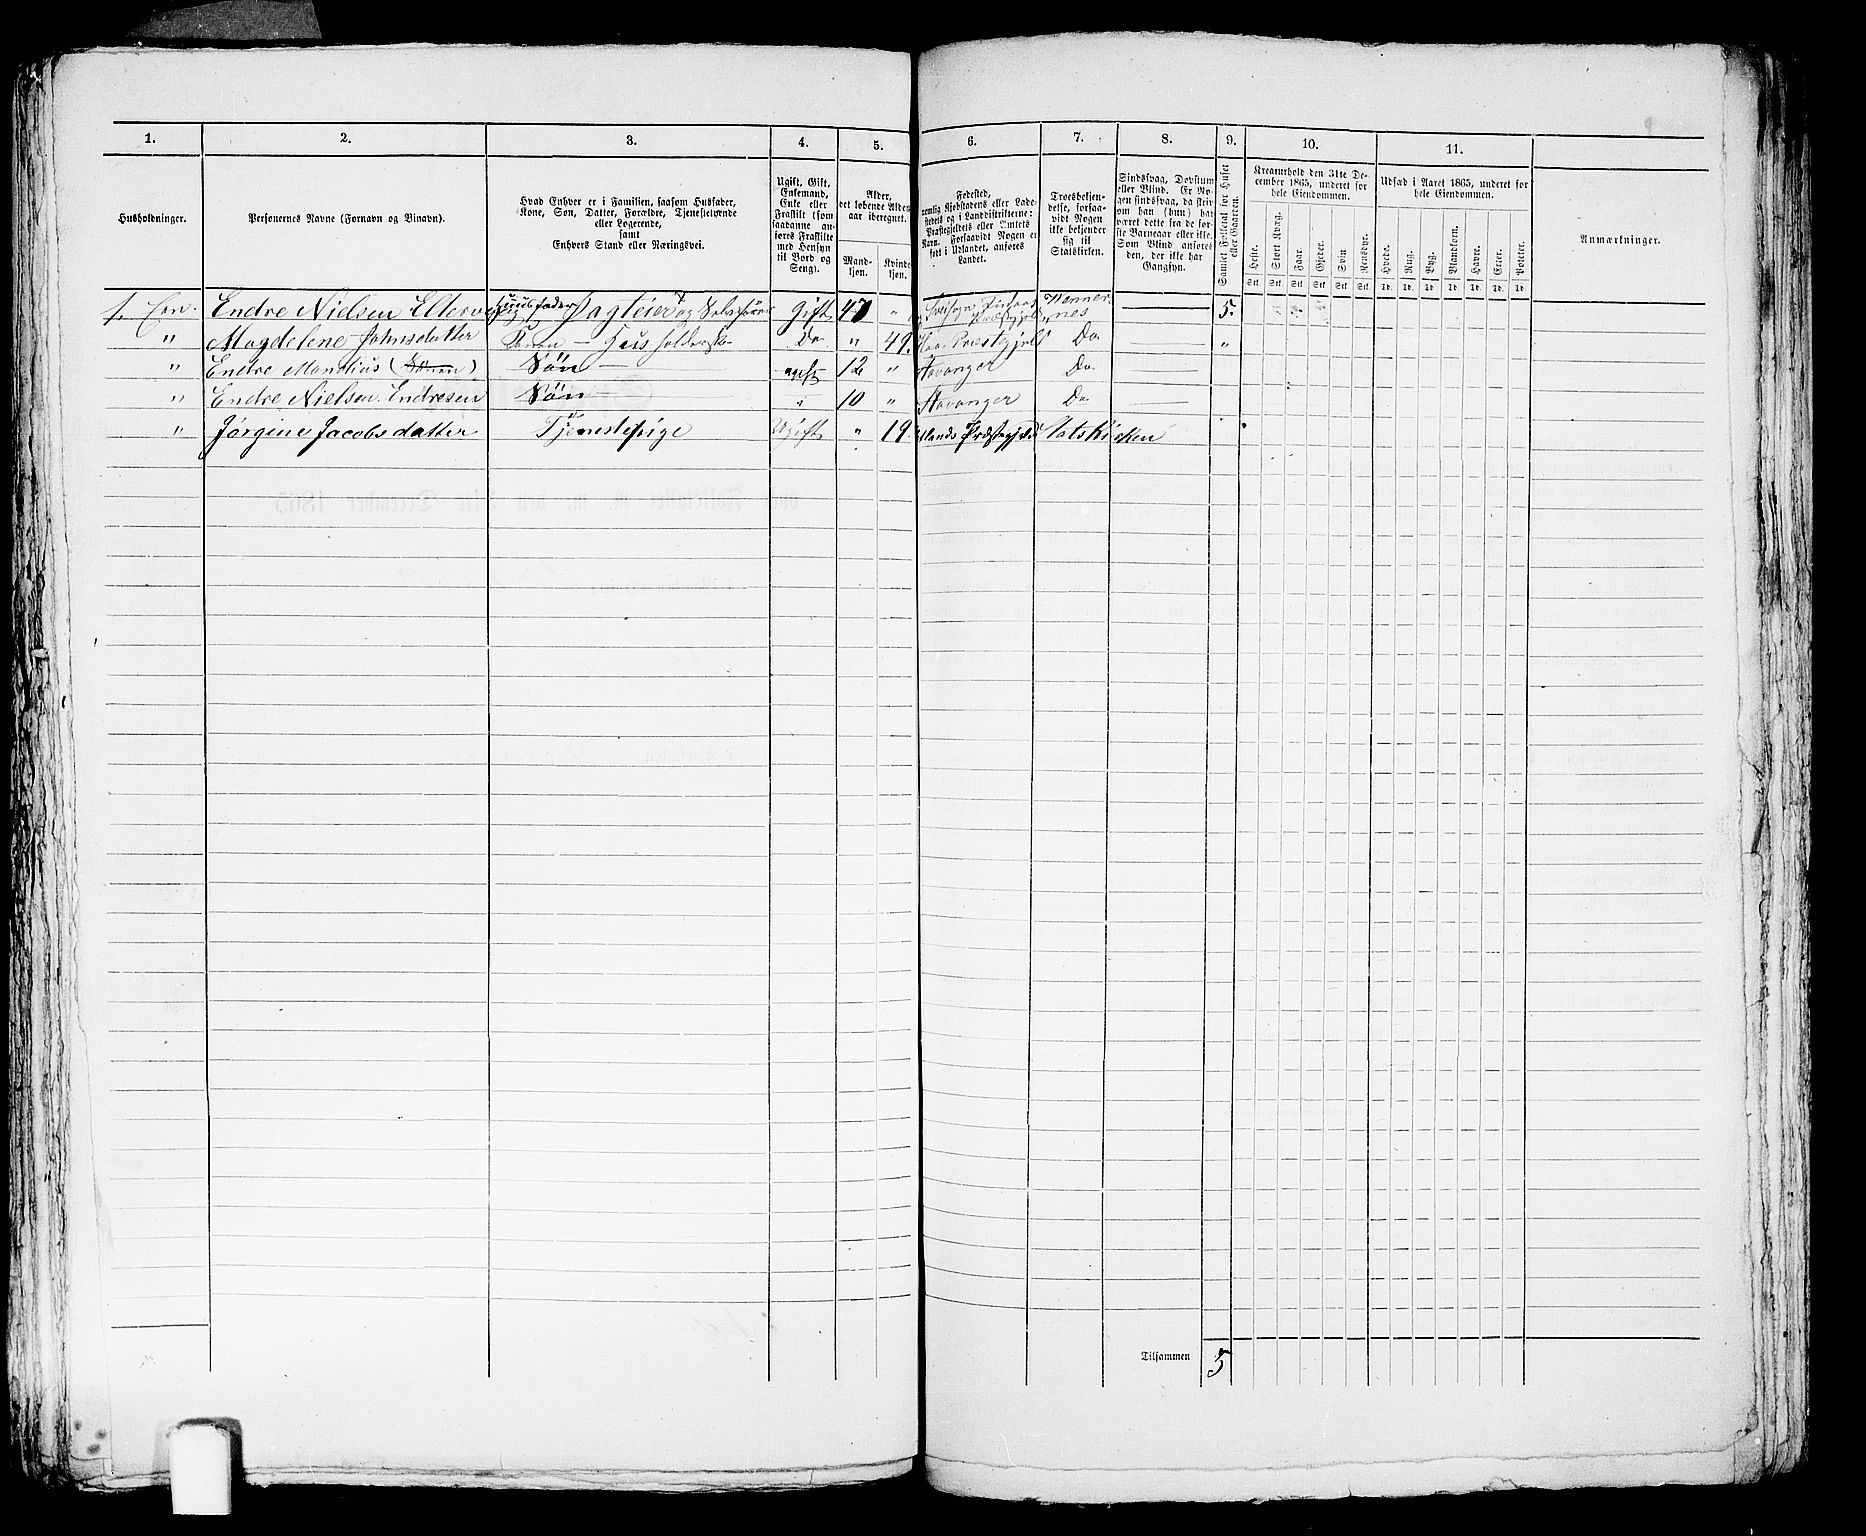 1. 2. 3. 4. 5. 6. 7. 8. 9. 10. 11.
Husholdninger.
Personernes Navne (Fornavn og Binavn).
Hvad Enhver er i Familien, saasom Husfader,
Kone, Søn, Datter, Forældre, Tjenestetyende
eller Logerende,
samt
Enhvers Stand eller Næringsvei.
Ugift, Gift,
Enkemand,
Enke eller
Fraskilt (som
saadanne anføres
Fraskilte
med Hensyn
til Bord og
Seng).
Alder,
det løbende Alders-
aar iberegnet.
Mand-
kjøn.
Kvinde-
kjøn.
Fødested,
nemlig Kjøbstadens eller Lade-
stedets og i Landdistrikterne:
Præstegjeldets eller Amtets
Navn. Forsaavidt Nogen er
født i Udlandet, anføres
Landet.
Troesbekjen-
delse, forsaa-
vidt Nogen
ikke bekjender
sig til
Statskirken.
Sindssvag, Døvstum
eller Blind. Er No-
gen sindssvag, da skri-
ves om han (hun) har
været dette fra de før-
ste Barneaar eller ikke.
Som Blind anføres
den, der ikke har
Gangsyn.
Samlet Folketal for Huset
eller Gaarden.
Kreaturhold den 31te De-
cember 1865, underet for
hele Eiendommen.
Heste. Stort Kvæg. Faar. Gjeder. Svin Rensdyr.
Stk. Stk. Stk. Stk. Stk. Stk.
Udsæd i Aaret 1865, underet for
hele Eiendommen.
Hvede. Rug. Byg. Blandkorn. Havre. Erter. Poteter.
Td. Td. Td. Td. Td. Td. Td.
Anmærkninger.
1. Een. Endre Nielsen Huusfader Gift 47 " 5.
" Magdelene Johnsdatter Do " 49. Præstegjeld Do "
" Endre Søn ugift 12 " Stavanger Do
" Endre Nielsen Endresen Søn " 10 " Stavanger Do
" Jørgine Jacobsdatter Tjenestepige Ugift " 19. Præstegjeld Statskirken
Tilsammen 5